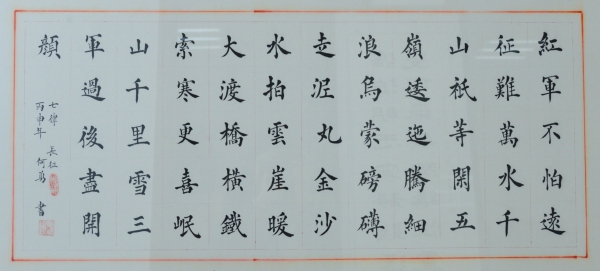 紅軍不怕遠
征難萬水千
山祇等閑五
嶺逶迤騰細
浪烏蒙磅礴
走泥丸金沙
水拍雲崖暖
大渡橋橫鐵
索寒更喜岷
山千里雪三
軍過後盡開
顏
七律 長征
丙申年 何 書